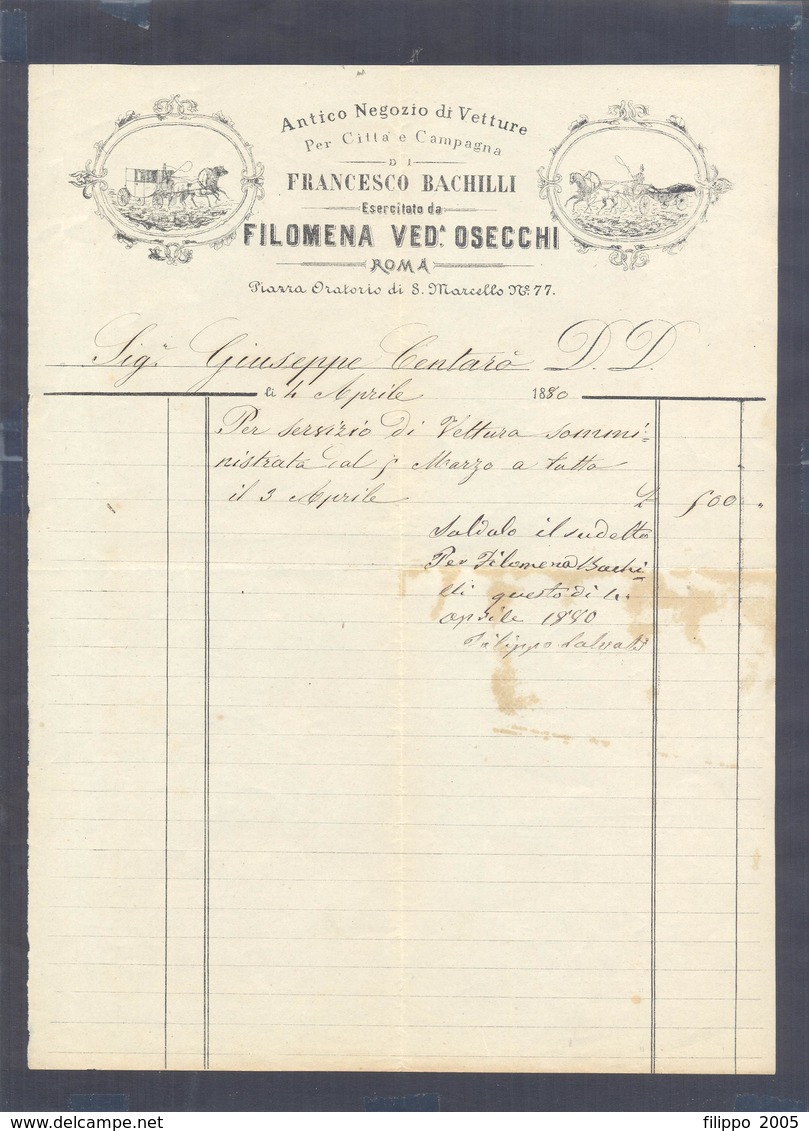 Antico Negozio di Vetture
Per Città e Campagna
DI
FRANCESCO BACHILLI
Esercitato da
FILOMENA VED.ᴬ OSECCHI
ROMA
Piazza Oratorio di S. Marcello Nº. 77.
Sigʳ Giuseppe Centarò D. D.
li 4 Aprile 1880
Per servizio di Vettura sommi=
nistrata dal 5 Marzo a tutto
il 3 Aprile £ 500 "
Saldato il sudetto
Per Filomena Bachi
lli questo di 4
aprile 1880
Filippo Salvati
filippo 2005